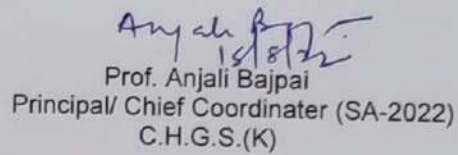 Anjali Bajpai
15/8/22
Prof. Anjali Bajpai
Principal/ Chief Coordinater (SA-2022)
C.H.G.S.(K)